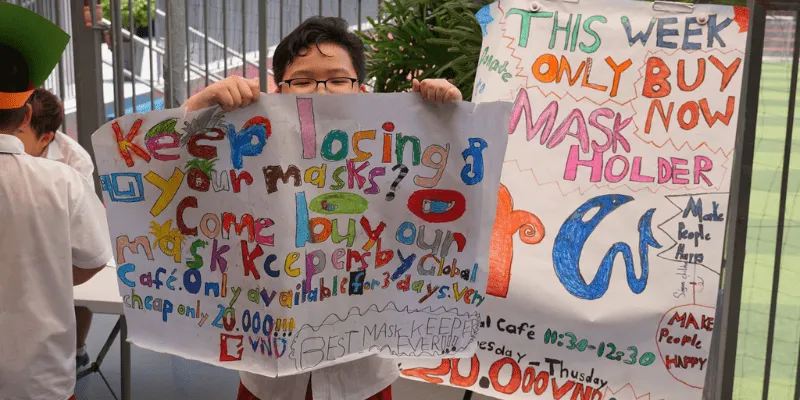 Keep losing
your masks?
Come buy our
mask Keepers by Global
Café. Only available for 3 days. Very
cheap only 20.000!!!
VND
BEST MASK KEEPER
EVER!!!!
THIS WEEK
ONLY BUY
NOW
MASK
HOLDER
Make
People
Happy
Café 11:30-12:30
Tuesday - Thusday
20.000VND
MAKE
PEOPLE
HAPPY